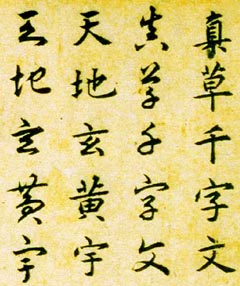 真草千字文
真草千字文
天地玄黃宇
天地玄黃宇